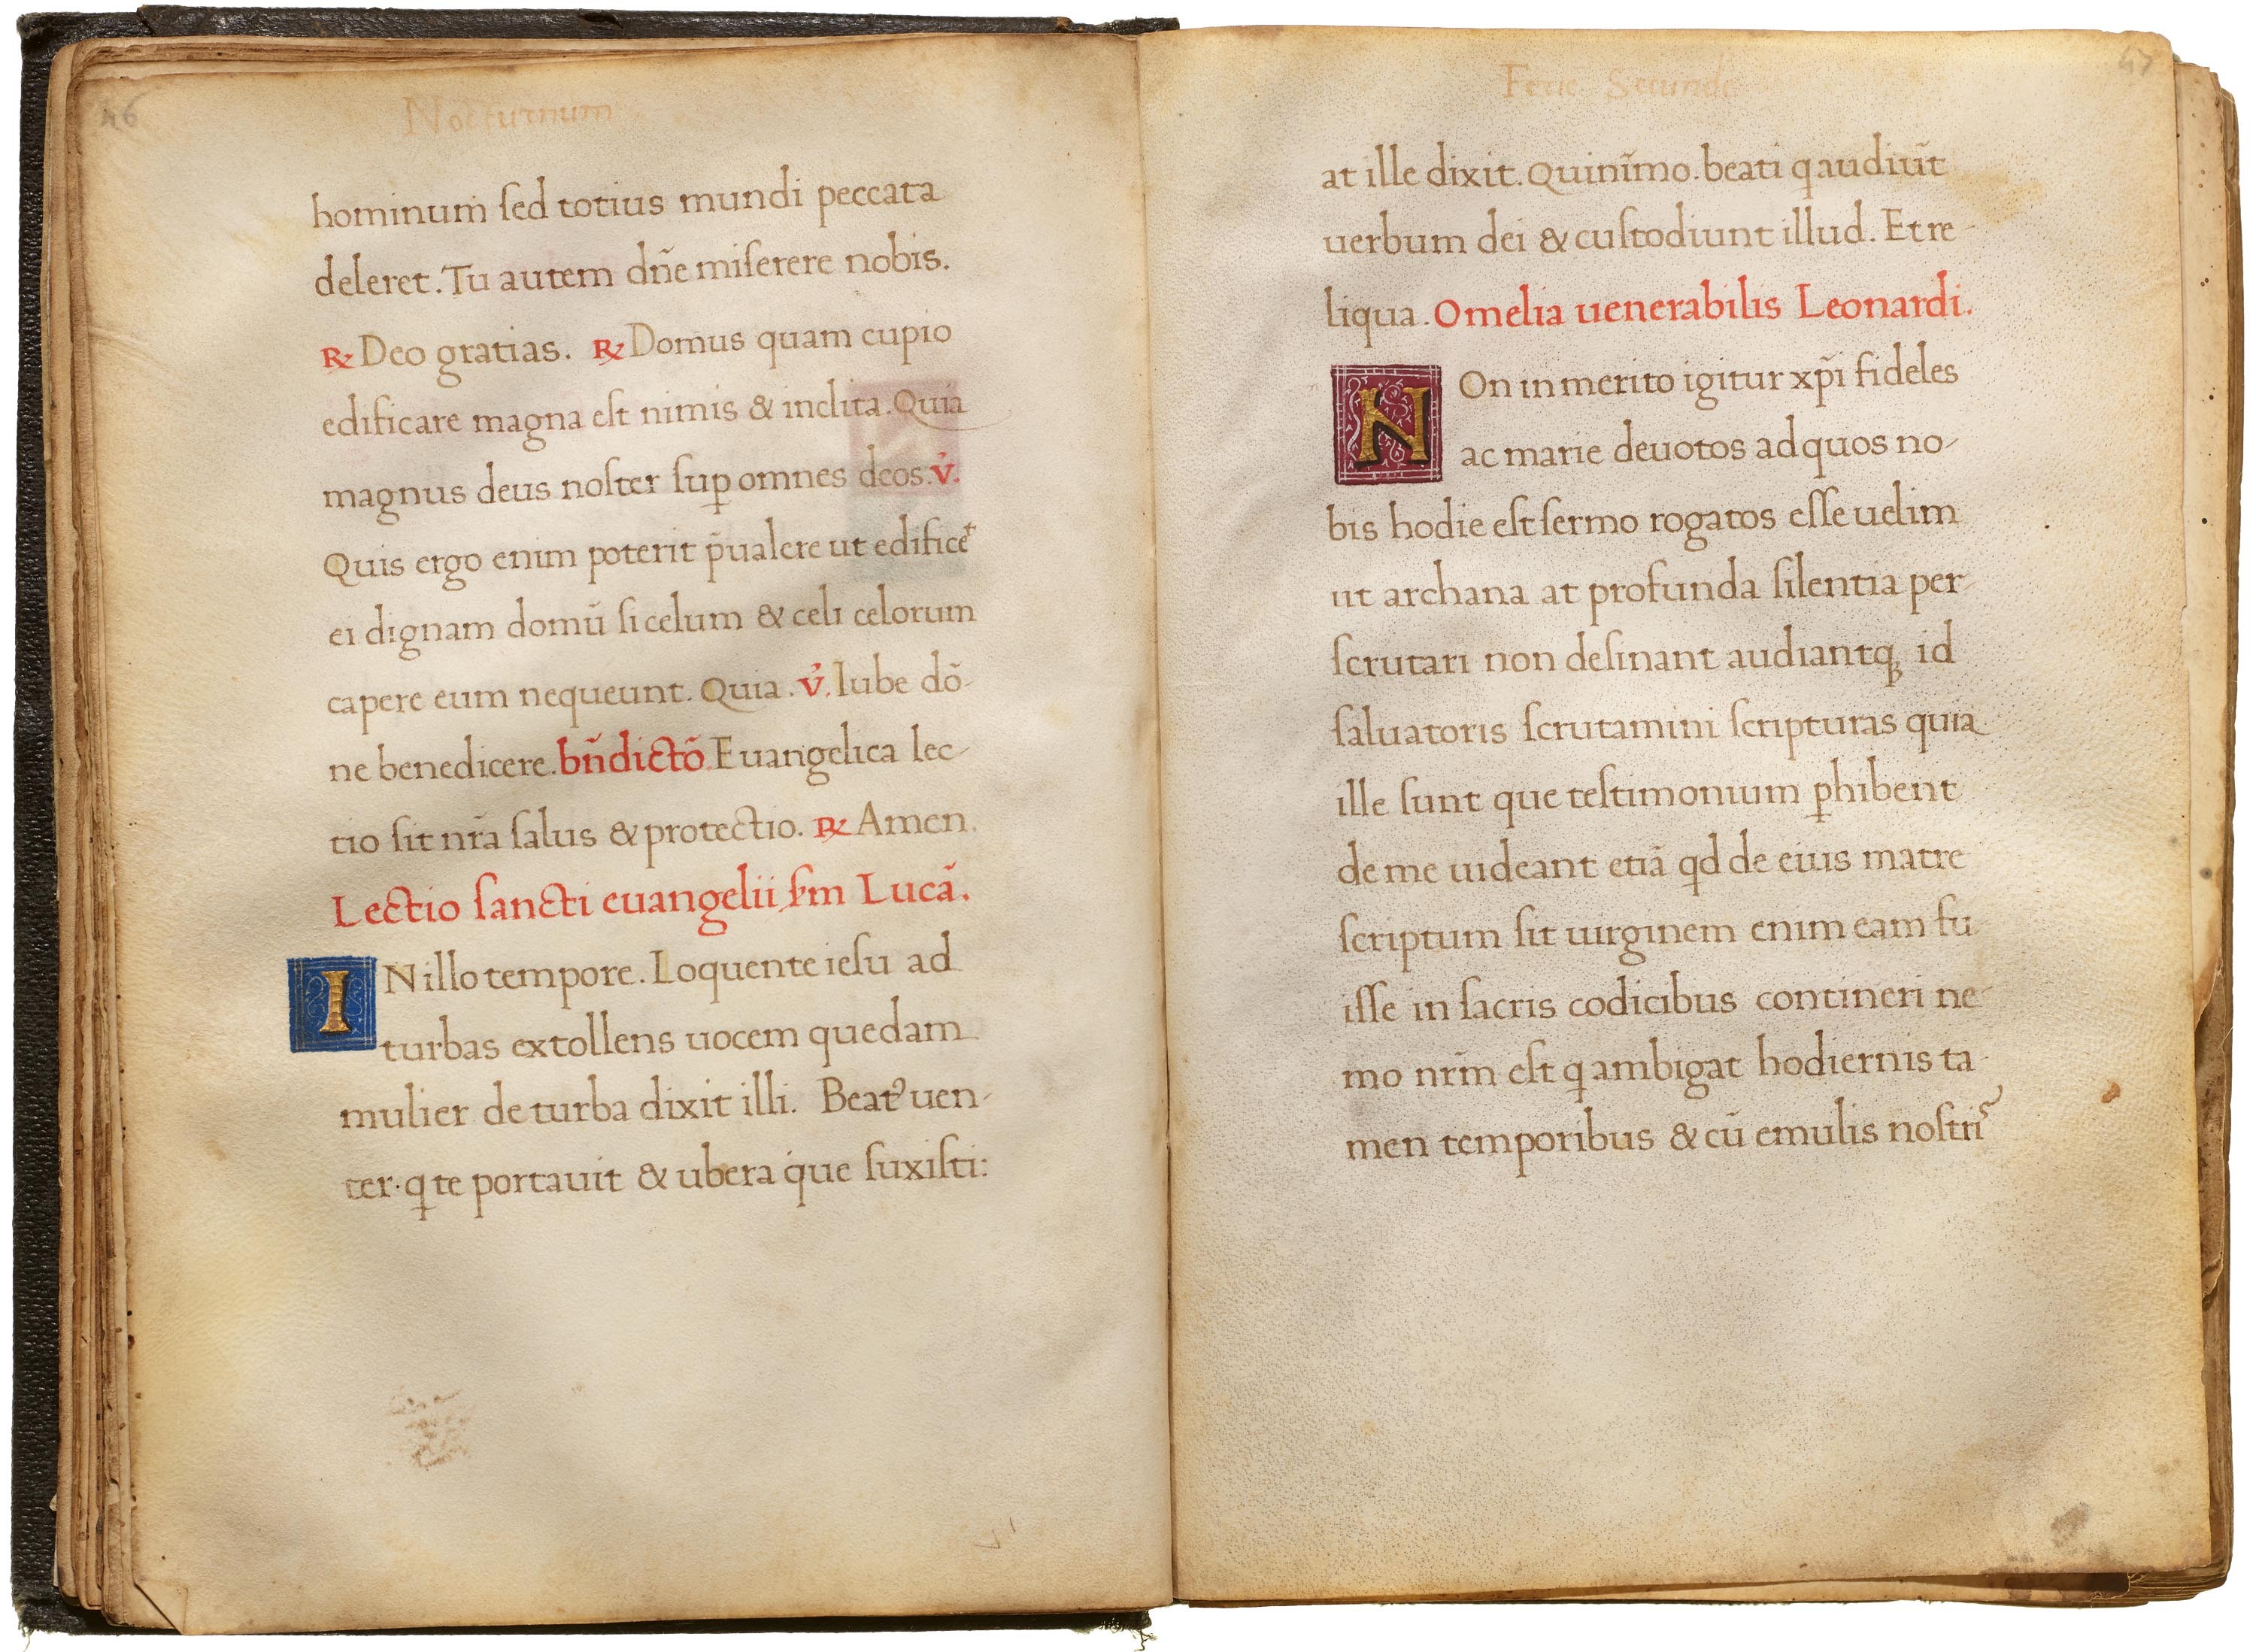 46
Nocturnum
hominum sed totius mundi peccata
deleret. Tu autem dñe miserere nobis.
℟ Deo gratias. ℟ Domus quam cupio
edificare magna est nimis & inclita. Quia
magnus deus noster suꝑ omnes deos. ℣.
Quis ergo enim poterit p̃ualere ut edificet᷑
ei dignam domũ si celum & celi celorum
capere eum nequeunt. Quia. ℣. Iube dõ-
ne benedicere. bñdictõ Euangelica lec-
tio sit nr̃a salus & protectio. ℟ Amen.
Lectio sancti euangelii sm̃ Lucã.
IN illo tempore. Loquente iesu ad
turbas extollens uocem quedam
mulier de turba dixit illi. Beatꝰ uen-
ter. q te portauit & ubera que suxisti:
47
Ferie Secunde
at ille dixit. Quinĩmo. beati q audiũt
uerbum dei & custodiunt illud. Et re-
liqua. Omelia uenerabilis Leonardi.
NOn in merito igitur xp̃i fideles
ac marie deuotos ad quos no-
bis hodie est sermo rogatos esse uelim
ut archana at profunda silentia per-
scrutari non desinant audiantq; id
saluatoris scrutamini scripturas quia
ille sunt que testimonium ꝑhibent
de me uideant etiã qd de eius matre
scriptum sit uirginem enim eam fu-
isse in sacris codicibus contineri ne-
mo nr̃m est q ambigat hodiernis ta-
men temporibus & cũ emulis nostris